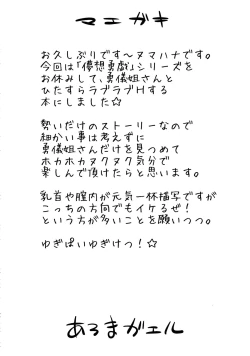 マエガキ
お久しぶりです〜ヌマハナです。
今回は「儚想勇戯」シリーズを
お休みして、勇儀姐さんと
ひたすらラブラブHする
本にしました☆
勢いだけのストーリーなので
細かい事は考えずに
勇儀姐さんだけを見つめて
ホカホカヌクヌク気分で
楽しんで頂けたらと思います。
乳首や膣内が元気一杯描写ですが
こっちの方向でもイケるぜ!
という方が多いことを願いつつ。
ゆぎぱいゆぎけつ!☆
あろまがエル